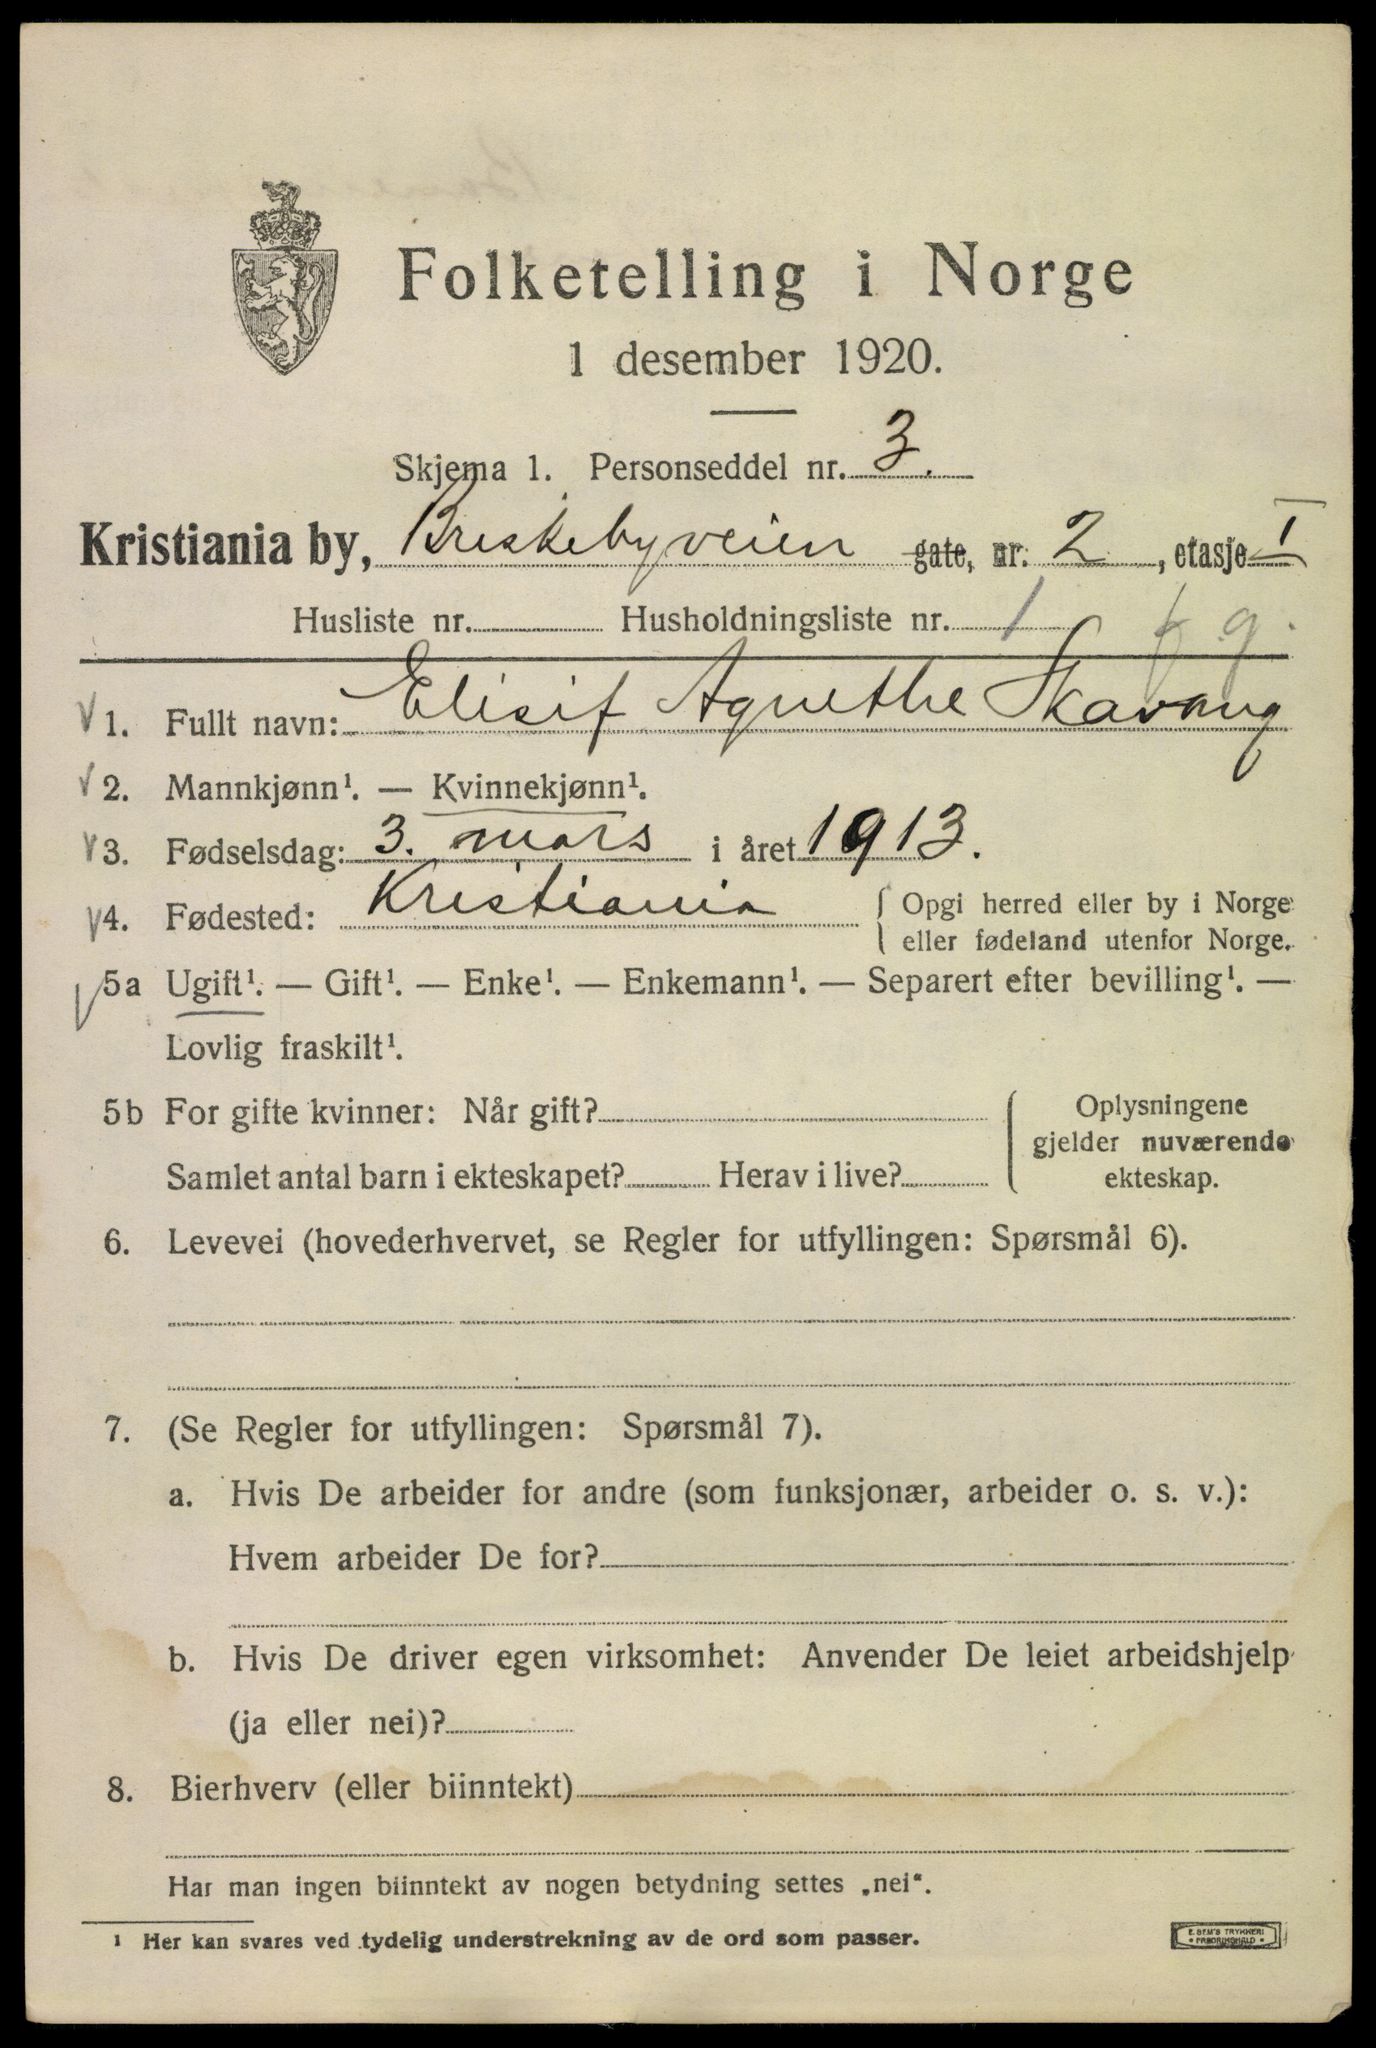 Folketelling i Norge
1 desember 1920.
Skjema 1. Personseddel nr. 3.
Kristiania by, Briskebyveien gate, nr. 2, etasje I
Husliste nr. Husholdningsliste nr. 1
1. Fullt navn: Elisif Agnethe Skavang
2. Mannkjønn¹. — Kvinnekjønn¹.
3. Fødselsdag: 3. mars i året 1913.
4. Fødested: Kristiania { Opgi herred eller by i Norge
eller fødeland utenfor Norge.
5a Ugift¹. — Gift¹. — Enke¹. — Enkemann¹. — Separert efter bevilling¹. —
Lovlig fraskilt¹.
5b For gifte kvinner: Når gift? { Oplysningene
gjelder nuværende
Samlet antal barn i ekteskapet? Herav i live? ekteskap.
6. Levevei (hovederhvervet, se Regler for utfyllingen: Spørsmål 6).
7. (Se Regler for utfyllingen: Spørsmål 7).
a. Hvis De arbeider for andre (som funksjonær, arbeider o. s. v.):
Hvem arbeider De for?
b. Hvis De driver egen virksomhet: Anvender De leiet arbeidshjelp
(ja eller nei)?
8. Bierhverv (eller biinntekt)
Har man ingen biinntekt av nogen betydning settes „nei“.
¹ Her kan svares ved tydelig understrekning av de ord som passer.
E. SEM'S TRYKKERI
• FREDRIKSHALD •